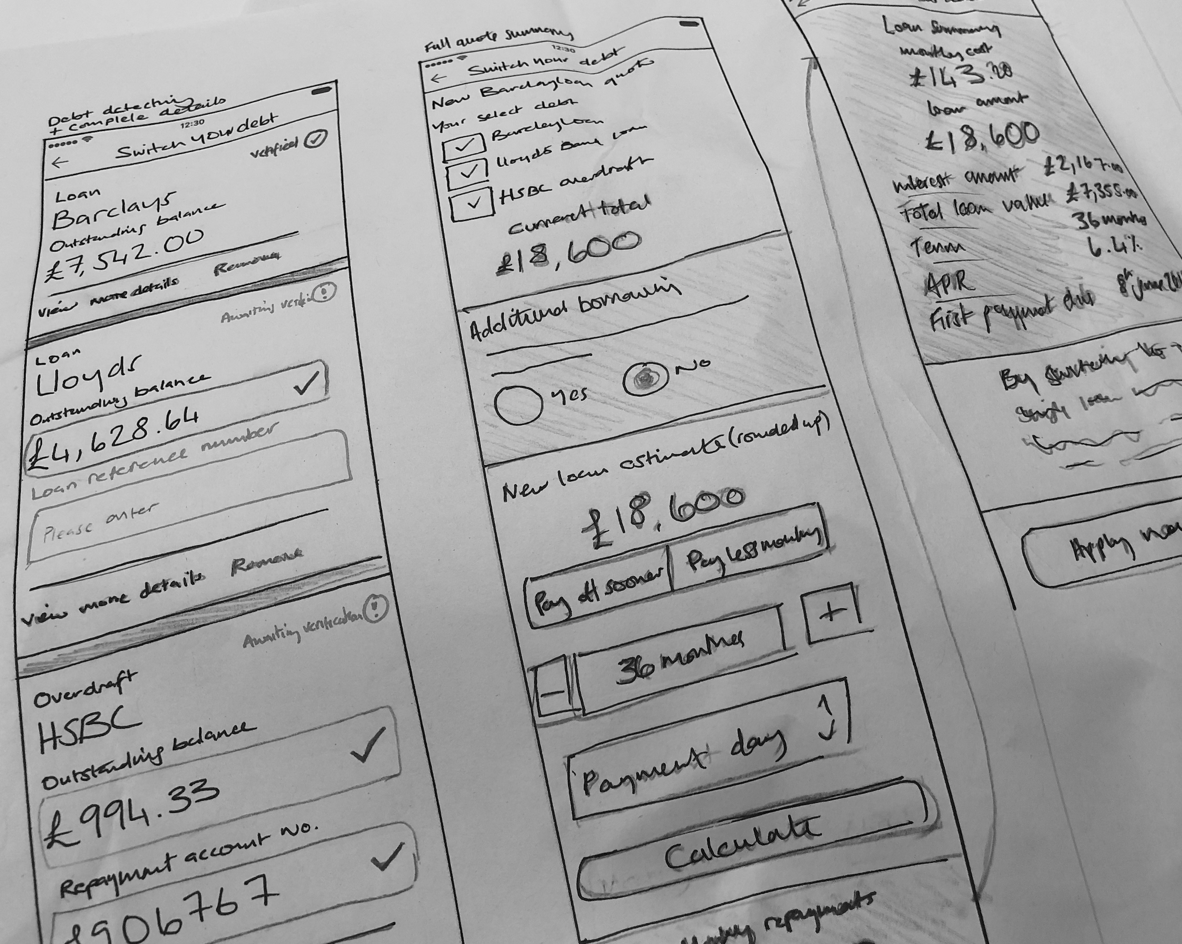 Debt detecting
+ complete details
12:30
← Switch your debt
verified ✓
Loan
Barclays
Outstanding balance
£7,542.00
View more details Remove
Awaiting
Loan
Lloyds
Outstanding balance
£4,628.64
Loan reference number
Please enter
View more details Remove
Awaiting verification !
Overdraft
HSBC
Outstanding balance
£994.33
Repayment account no.
£906767
Full quote summary
12:30
← Switch your debt
New Barclayloan quote
Your select debt
Barclayloan
Lloyds Bank Loan
HSBC overdraft
Current total
£18,600
Additional borrowing
Yes No
New loan estimate (rounded up)
£18,600
Pay off sooner Pay less monthly
− 36 months +
Payment day
Calculate
repayments
Loan Summary
monthly cost
£143.20
loan amount
£18,600
Interest amount £2,167.00
Total loan value £7,355.00
Term 36 months
APR 6.4%
First payment date 8th June
By switching
Single loan
Apply now